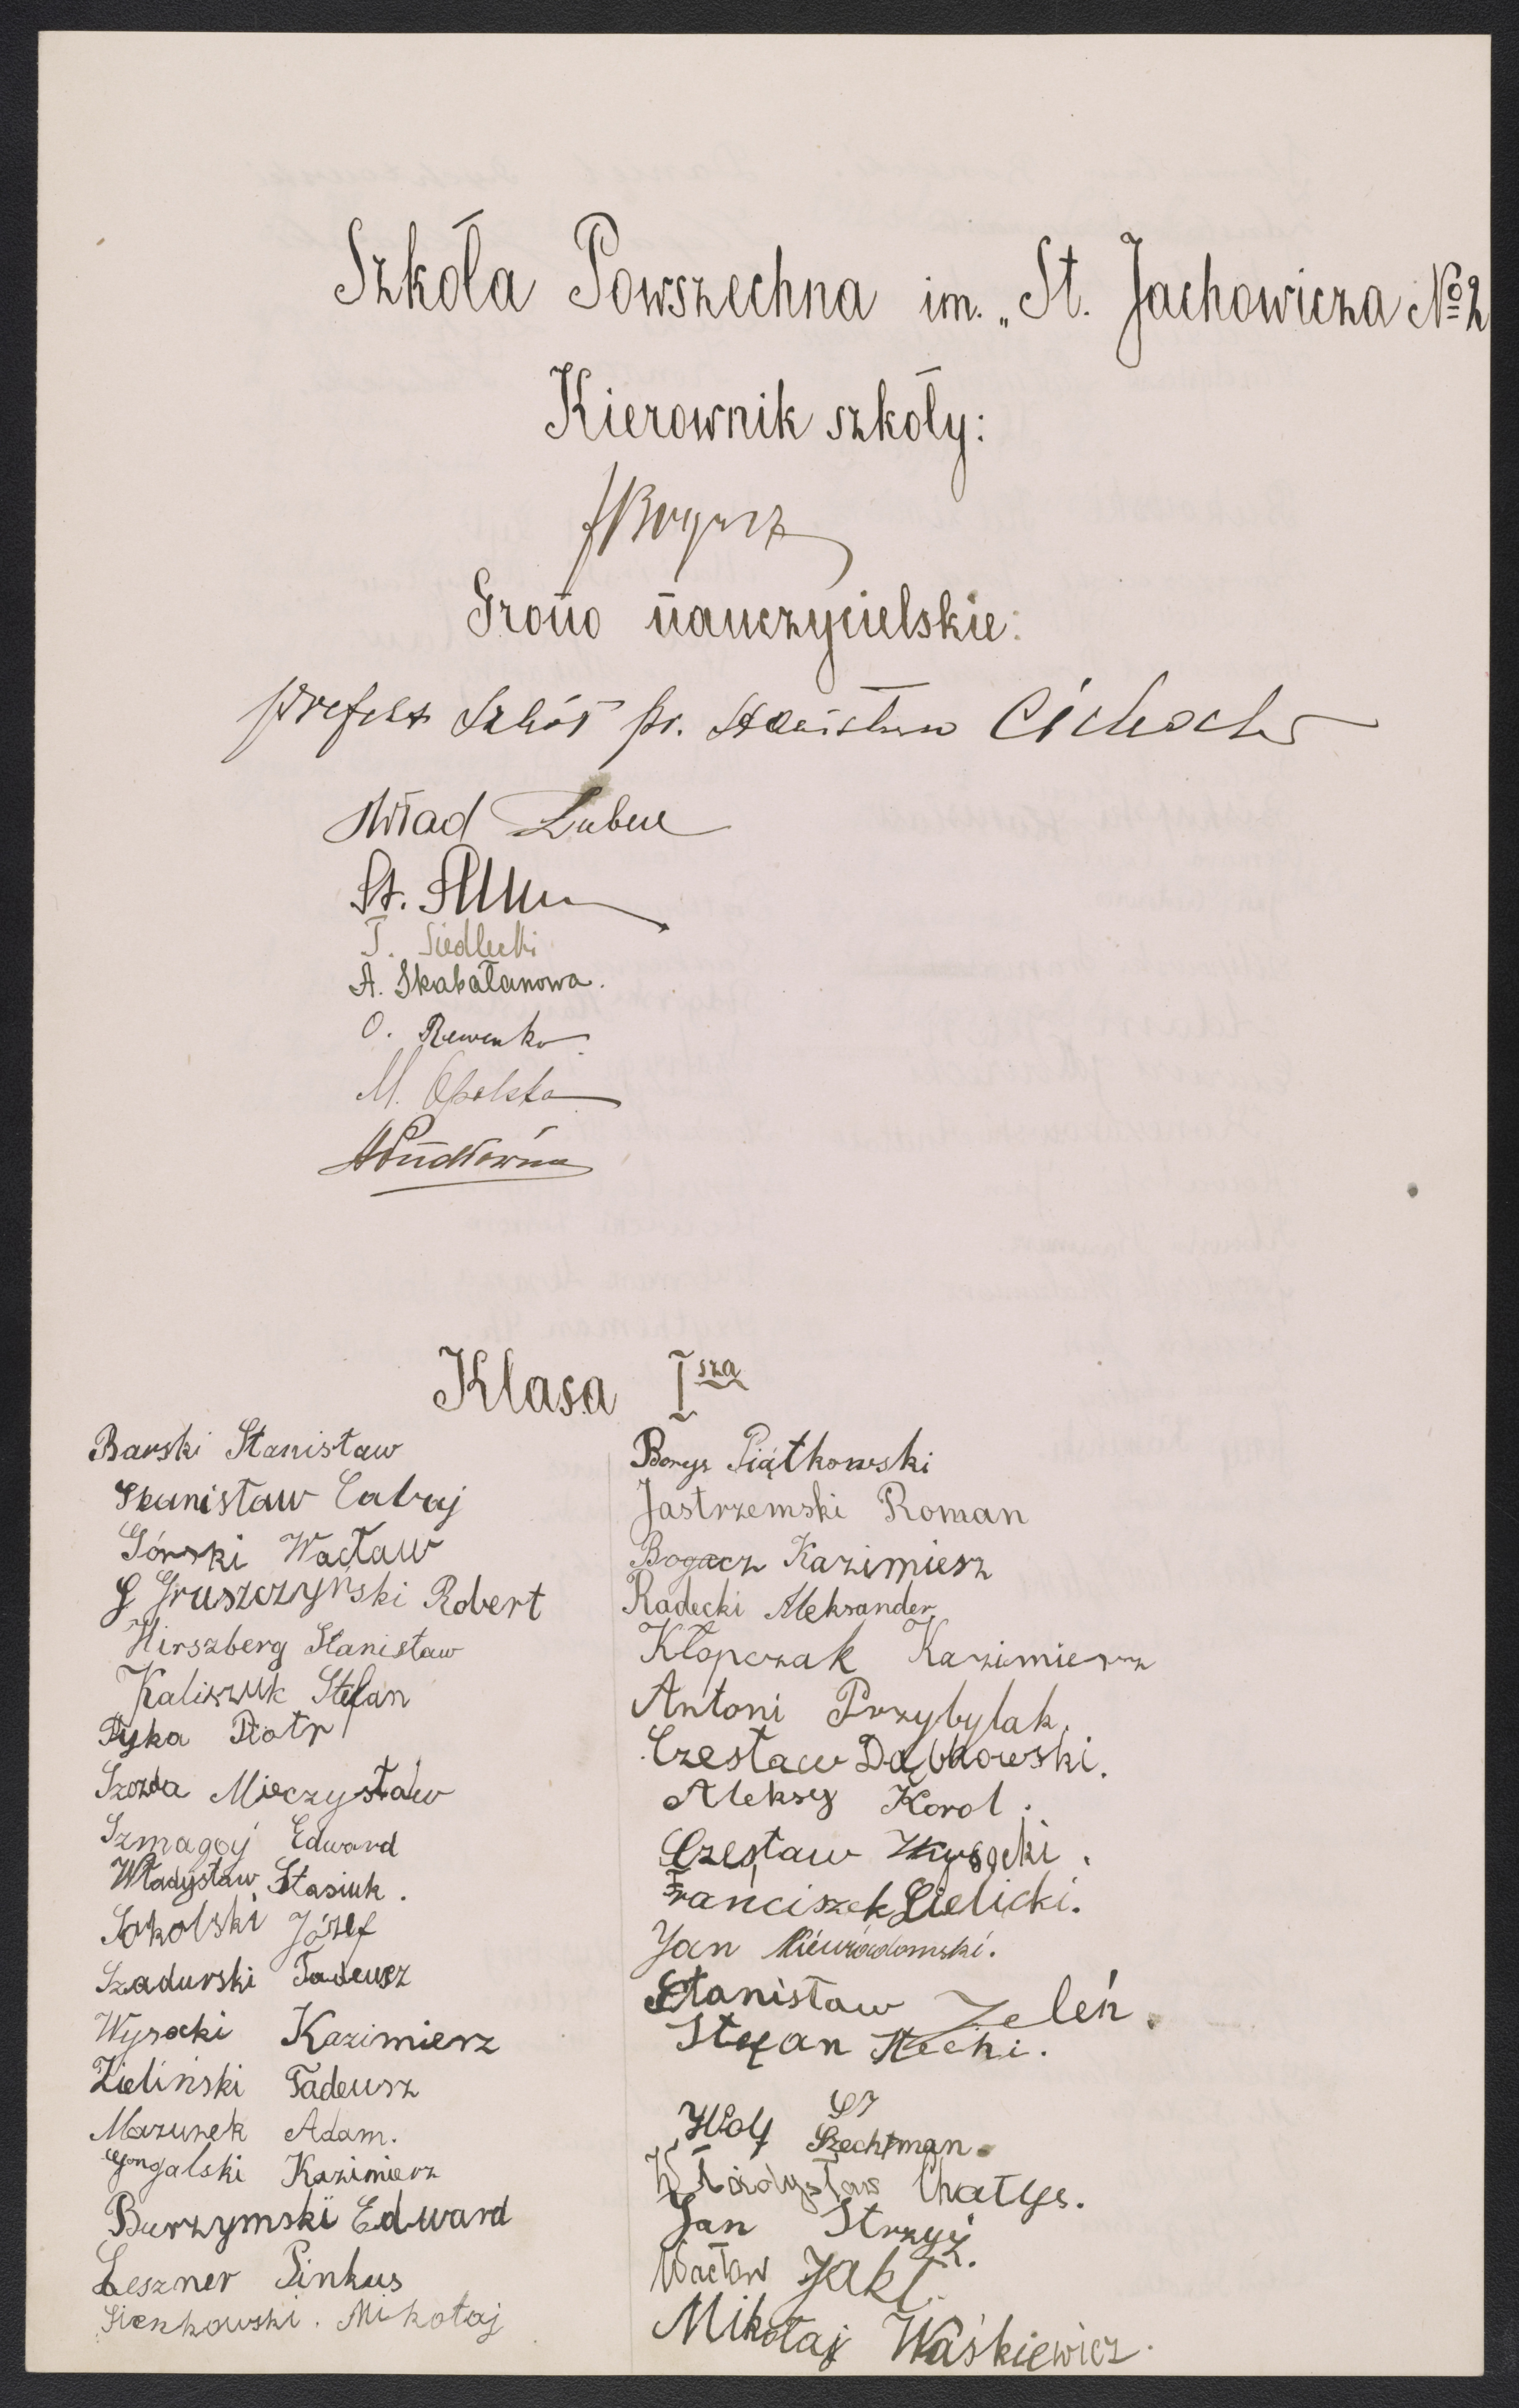 Szkoła Powszechna im. „St. Jachowicza № 2
Kierownik szkoły:
Grono nauczycielskie:
Prefekt Szkół ks. Stanisław Cichocki
Wład
St.
T. Siedlecki
A. Skabałanowa.
O. Rewenko.
M. Opolska
Klasa I sza
Barski Stanisław
Stanisław Cabaj
Górski Wacław
G Gruszczyński Robert
Hirszberg Stanisław
Kaliszuk Stefan
Pyka Piotr
Szozda Mieczysław
Szmagaj Edward
Władysław Stasiuk.
Sokolski Józef
Szadurski Tadeusz
Wysocki Kazimierz
Zieliński Tadeusz
Mazurek Adam.
Gongalski Kazimierz
Burzymski Edward
Leszner Pinkus
Sienkowski. Mikołaj
Borys Piątkowski
Jastrzemski Roman
Bogacz Kazimierz
Radecki Aleksander
Kłopczak Kazimierz
Antoni Przybylak.
Czesław Dąbkowski.
Aleksy Korol.
Czesław Wysocki.
Franciszek Lielicki.
Jan Nieuradomski.
Stanisław Zeleń.
Stefan Stecki.
Wolf Szechtman.
Władysław Chałys.
Jan Strzyż.
Wacław Jakl.
Mikołaj Waśkiewicz.